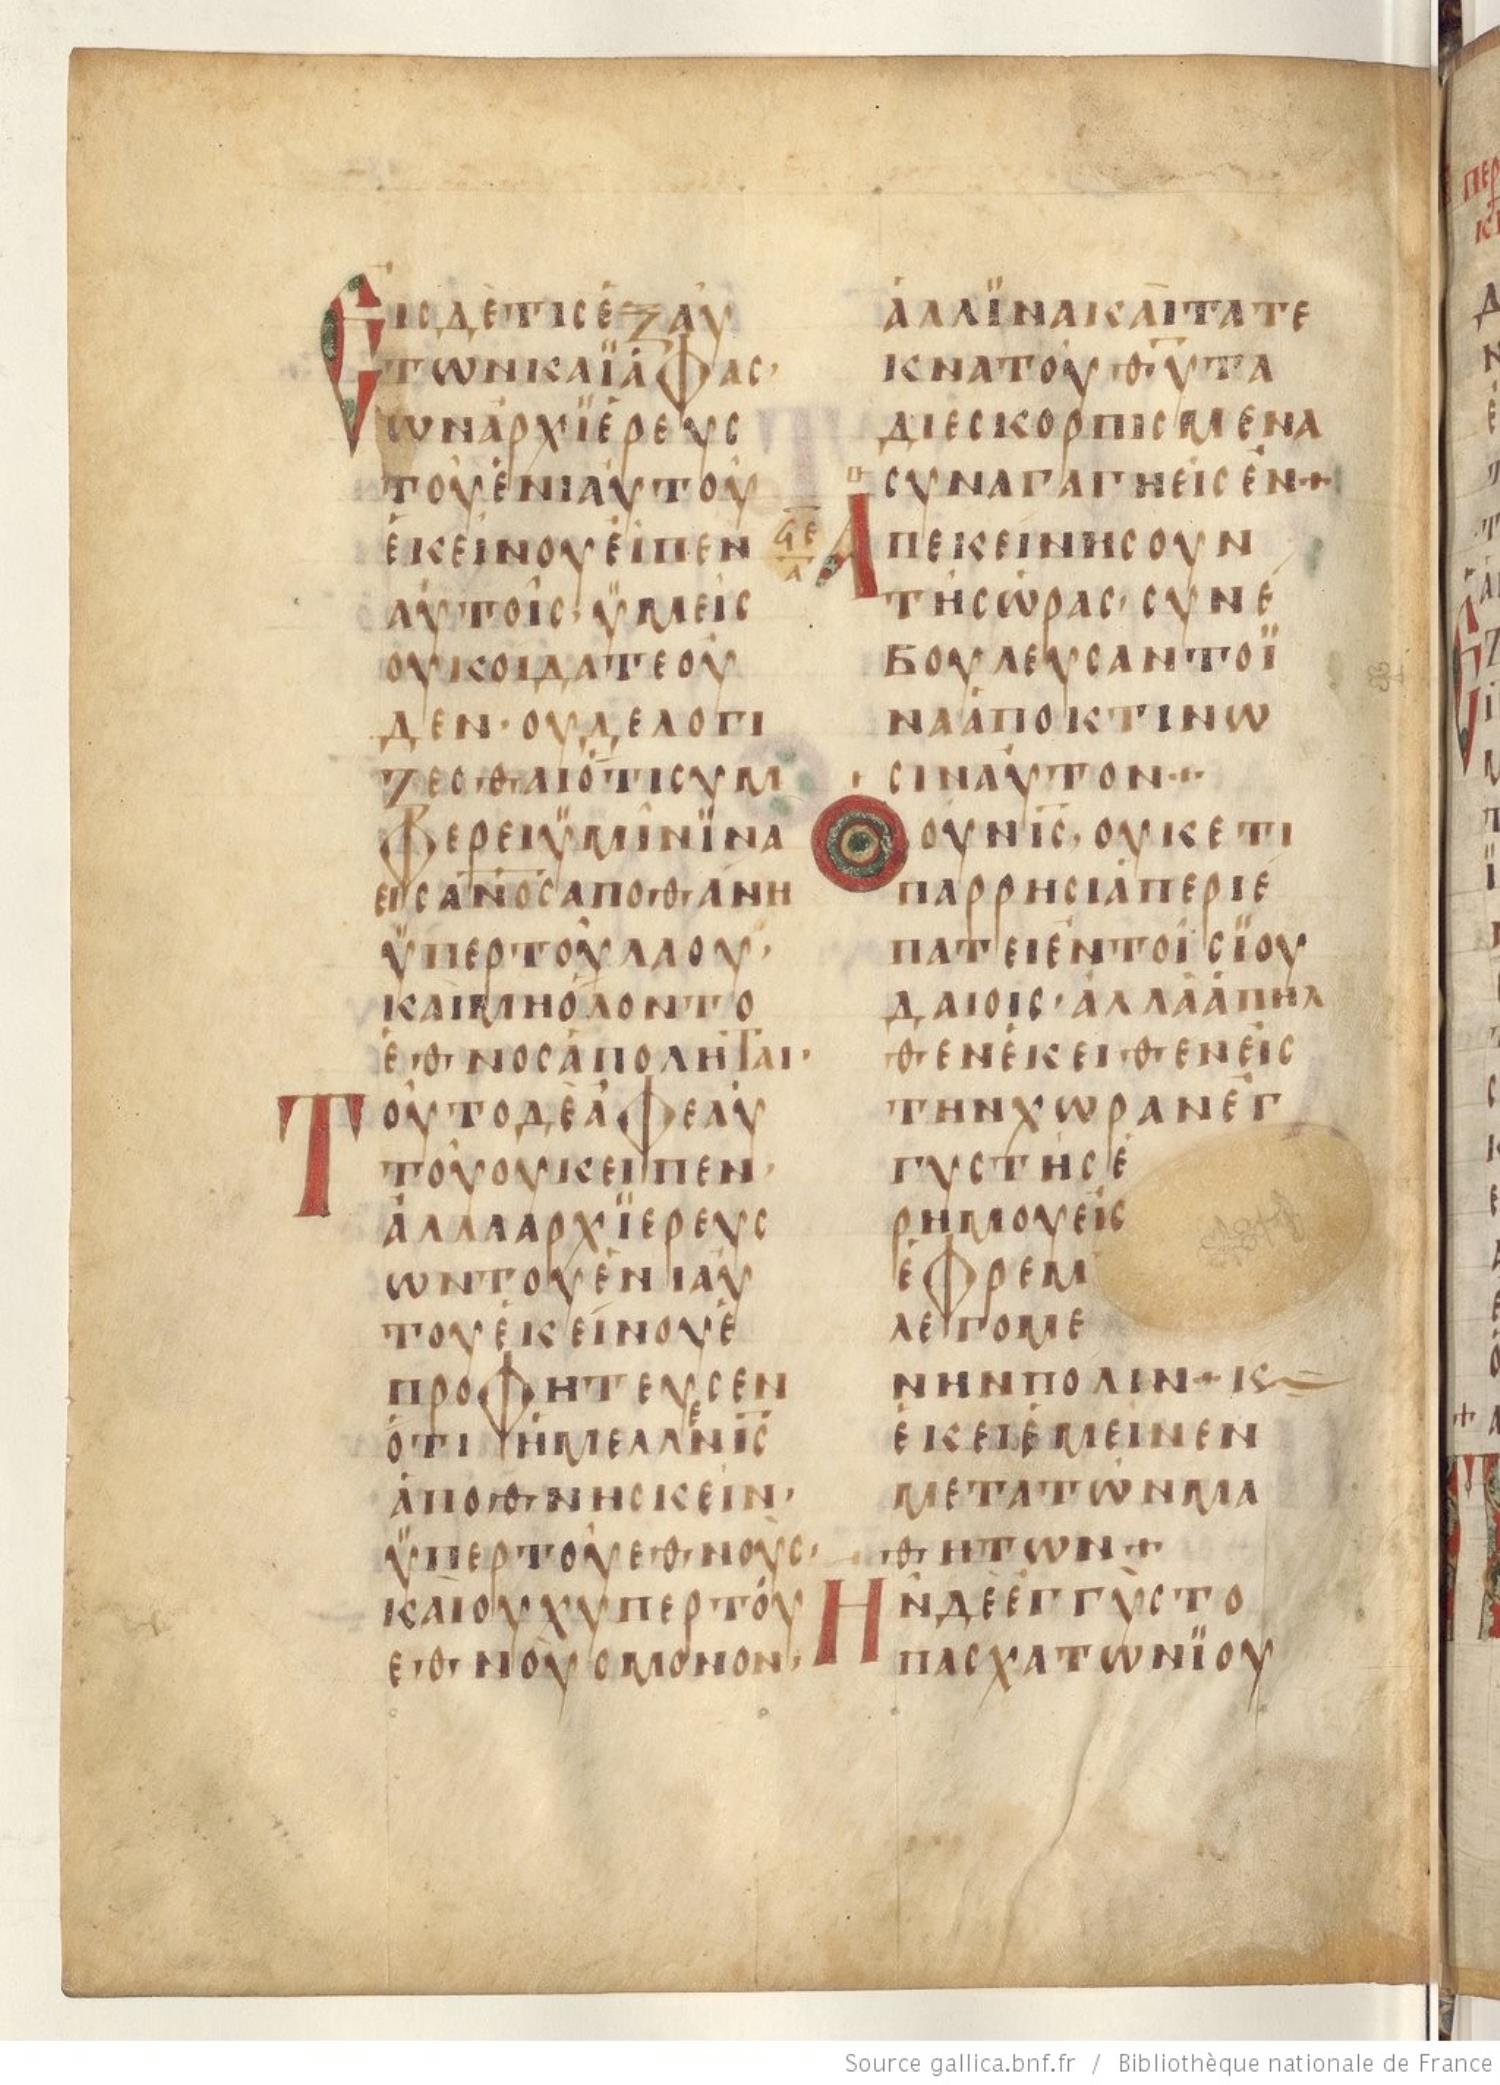 ΕΙϹΔΕΤΙϹΕΞΑΥ
ΤΩΝΚΑΪΑΦΑϹ·
ΩΝΑΡΧΪΕΡΕΥϹ
ΤΟΥΕΝΙΑΥΤΟΥ
ΕΚΕΙΝΟΥΕΙΠΕΝ
ΑΥΤΟΙϹ·ΫΜΕΙϹ
ΟΥΚΟΙΔΑΤΕΟΥ
ΔΕΝ·ΟΥΔΕΛΟΓΙ
ΖΕϹΘΑΙΟΤΙϹΥΜ
ΦΕΡΕΙΫΜΙΝΪΝΑ
ΕΙϹΑΝΟϹΑΠΟΘΑΝΗ
ΫΠΕΡΤΟΥΛΑΟΥ·
ΚΑΙΜΗΟΛΟΝΤΟ
ΕΘΝΟϹΑΠΟΛΗΤΑΙ·
ΤΟΥΤΟΔΕΑΦΕΑΥ
ΤΟΥΟΥΚΕΙΠΕΝ·
ΑΛΛΑΑΡΧΪΕΡΕΥϹ
ΩΝΤΟΥΕΝΙΑΥ
ΤΟΥΕΚΕΙΝΟΥΕ
ΠΡΟΦΗΤΕΥϹΕΝ
ΟΤΙΗΜΕΛΛΕΝΙϹ
ΑΠΟΘΝΗϹΚΕΙΝ·
ΫΠΕΡΤΟΥΕΘΝΟΥϹ·
ΚΑΙΟΥΧΥΠΕΡΤΟΥ
ΕΘΝΟΥϹΜΟΝΟΝ·
ΑΛΛΪΝΑΚΑΙΤΑΤΕ
ΚΝΑΤΟΥΘΥΤΑ
ΔΙΕϹΚΟΡΠΙϹΜΕΝΑ
ϹΥΝΑΓΑΓΗΕΙϹΕΝ+
ϞΕ
Α
ΑΠΕΚΕΙΝΗϹΟΥΝ
ΤΗϹΩΡΑϹ·ϹΥΝΕ
ΒΟΥΛΕΥϹΑΝΤΟΪ
ΝΑΑΠΟΚΤΙΝΩ
ϹΙΝΑΥΤΟΝ+
ΟΟΥΝΙϹ·ΟΥΚΕΤΙ
ΠΑΡΡΗϹΙΑΠΕΡΙΕ
ΠΑΤΕΙΕΝΤΟΙϹΪΟΥ
ΔΑΙΟΙϹ·ΑΛΛΑΑΠΗΛ
ΘΕΝΕΚΕΙΘΕΝΕΙϹ
ΤΗΝΧΩΡΑΝΕΓ
ΓΥϹΤΗϹΕ
ΡΗΜΟΥΕΙϹ
ΕΦΡΕΜ
ΛΕΓΟΜΕ
ΝΗΝΠΟΛΙΝ+Κ
ΕΚΕΙΕΜΕΙΝΕΝ
ΜΕΤΑΤΩΝΜΑ
ΘΗΤΩΝ+
ΗΝΔΕΕΓΓΥϹΤΟ
ΠΑϹΧΑΤΩΝΪΟΥ
Source gallica.bnf.fr / Bibliothèque nationale de France